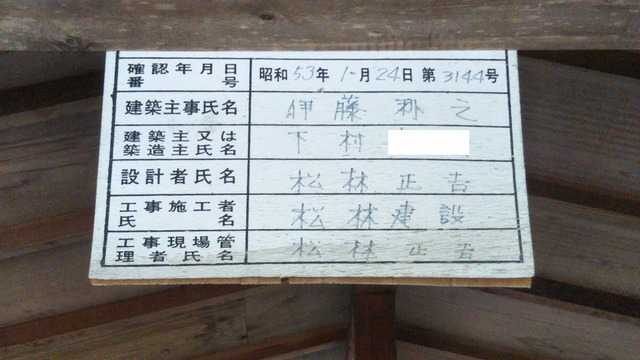 確認年月日番号 昭和53年1月24日第3144号
建築主事氏名 伊藤利之
建築主又は築造主氏名 下村
設計者氏名 松林正吉
工事施工者氏名 松林建設
工事現場管理者氏名 松林正吉